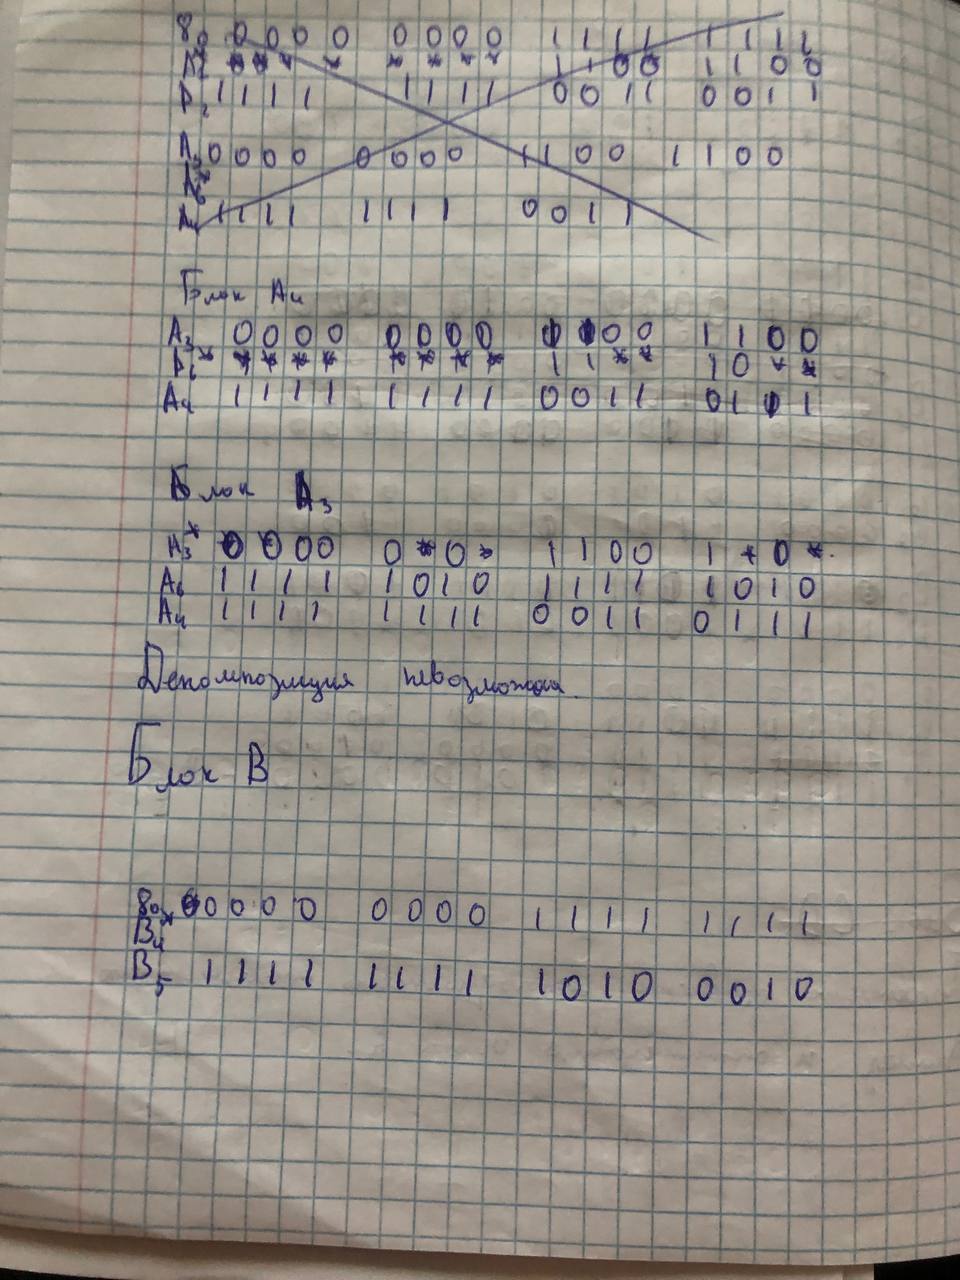 0 0 0 0 0 0 0 0 1 1 1 1 1 1 1 1
* * * * * * * * 1 1 0 0 1 1 0 0
1 1 1 1 1 1 1 1 0 0 1 1 0 0 1 1
0 0 0 0 0 0 0 0 1 1 0 0 1 1 0 0
1 1 1 1 1 1 1 1 0 0 1 1
Блок A4
A3 0 0 0 0 0 0 0 0 0 0 1 1 0 0
* * * * * * * * * 1 1 * * 1 0 * *
A4 1 1 1 1 1 1 1 1 0 0 1 1 0 1 1
Блок A3
A3* 0 0 0 0 0 * 0 * 1 1 0 0 1 * 0 *
A6 1 1 1 1 1 0 1 0 1 1 1 1 1 0 1 0
A4 1 1 1 1 1 1 1 1 0 0 1 1 0 1 1 1
Декомпозиция невозможна.
Блок B
80 0 0 0 0 0 0 0 0 1 1 1 1 1 1 1 1
B4*
B5 1 1 1 1 1 1 1 1 1 0 1 0 0 0 1 0